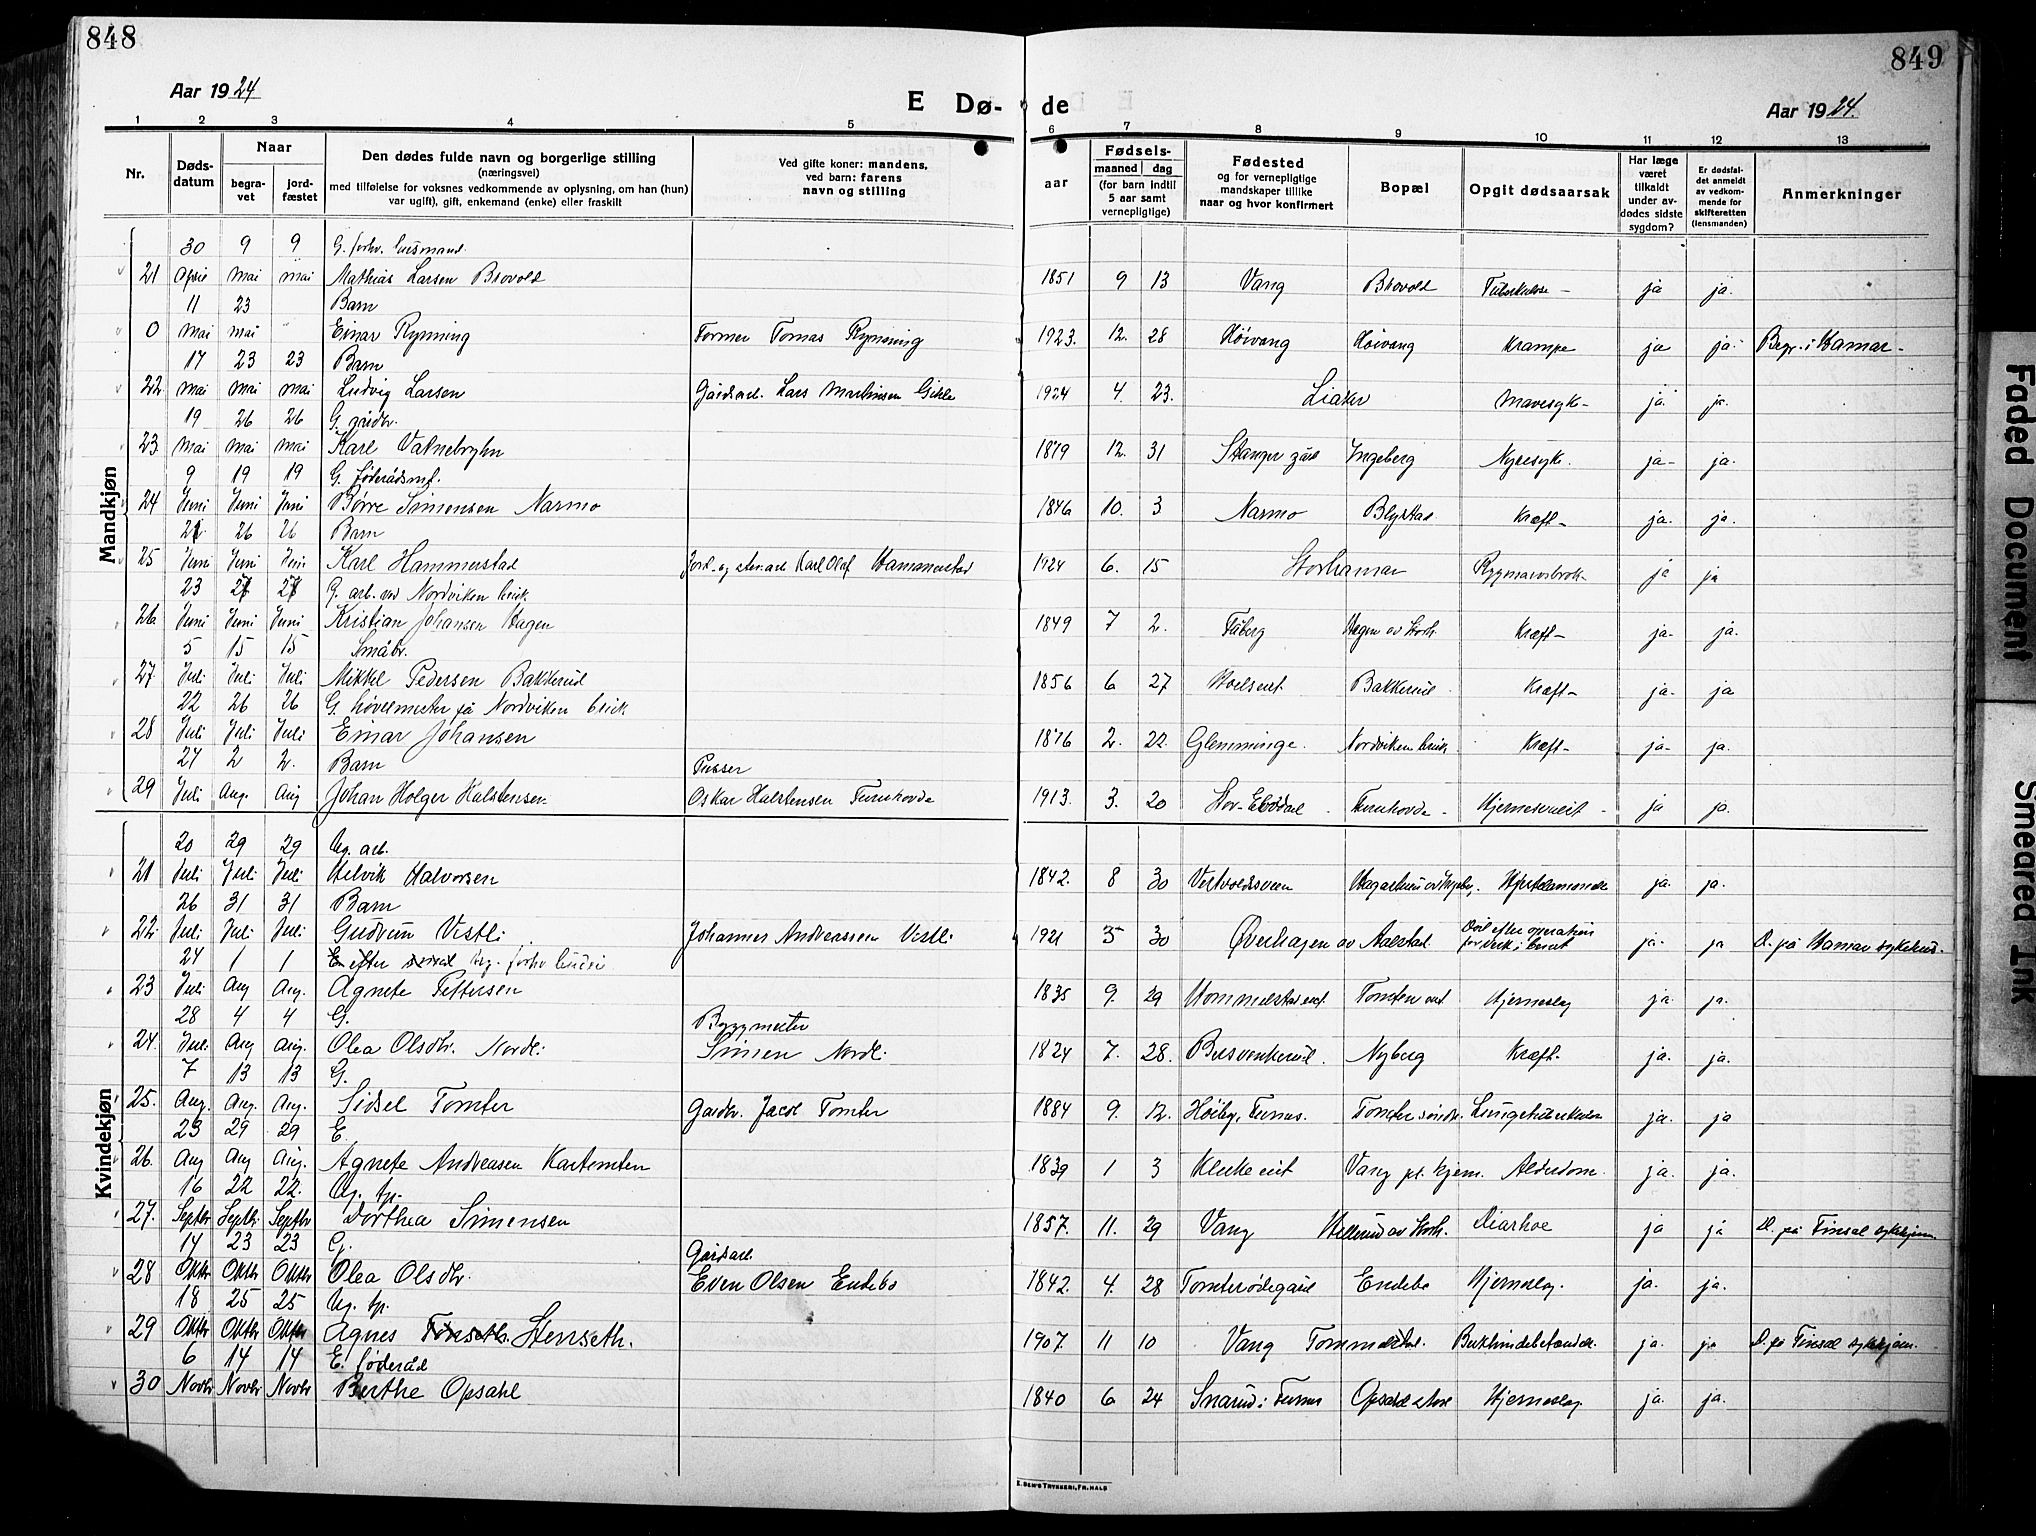 848
849
Aar 1924
E Dø-
de
Aar 1924.
1 2 3 4 5 6 7 8 9 10 11 12 13
Nr.
Døds-
datum
Naar
begra-
vet
jord-
fæstet
Den dødes fulde navn og borgerlige stilling
(næringsvei)
med tilføielse for voksnes vedkommende av oplysning, om han (hun)
var ugift), gift, enkemand (enke) eller fraskilt
Ved gifte koner: mandens,
ved barn: farens
navn og stilling
aar
Fødsels-
maaned dag
(for barn indtil
5 aar samt
vernepligtige)
Fødested
og for vernepligtige
mandskaper tillike
naar og hvor konfirmert
Bopæl
Opgit dødsaarsak
Har læge
været
tilkaldt
under av-
dødes sidste
sygdom?
Er dødsfal-
det anmeldt
av vedkom-
mende for
skifteretten
(lensmanden)
Anmerkninger
Mandkjøn
30 9 9 G. forhv. husmand.
21 April mai mai Mathias Larsen Brovold 1851 9 13 Vang Brovold Tuberkulose - ja ja.
11 23 Barn
0 mai mai Einar Rynning Former Tomas Rynning 1923. 12. 28 Høivang Høivang Krampe ja ja. Begr. i Hamar -
17 23 23 Barn
22 mai mai mai Ludvig Larsen Gaardsarb. Lars Martinsen 1924 4. 23. Liaker Mavesyk- ja. ja.
19 26 26 G. gårdbr.
23. mai mai mai Karl 1879 12. 31 Stanger Ingeberg Nyresyk. ja- ja.
9 19 19 G. føderådsm.
24 Juni Juni Juni Børre Simensen Narmo 1846 10. 3 Narmo Blystad Kræft- ja. ja.
21. 26 26 Barn
25 Juni Juni Juni Karl Hammerstad Jord- og stenarb. Karl Olaf Hammerstad 1924 6. 15 Storhamar Rygmarvsbrok- ja ja
23 27 27 G. arb. ved Nordviken bruk.
26 Juni Juni Juni Kristian Johansen Hagen 1849 7 2. Fåberg Hagen av Storh. Kræft- ja- ja.
5 15 15 Småbr.
27. Juli Juli Juli Mikkel Pedersen Bakkerud 1856 6 27 Bakkerud Kræft- ja- ja
22 26 26 G. høvelmester på Nordviken bruk
28 Juli Juli Juli Einar Johansen 1876 2. 22. Glemminge. Nordviken bruk. Kræft- ja- ja.
27 2 2. Barn Pusser
29 Juli Aug. Aug Johan Holger Halstensen Oskar Halstensen Furuhovde 1913. 3. 20 Furuhovde - - ja ja.
Kvindekjøn
20 29 29 Ug. arb.
21 Juli Juli Juli Helvik Halvorsen 1842. 8 30 Vestvoldsveen Hjertelammelse ja. ja.
26 31 31 Barn
22. Juli Juli Juli Gudrun Vestli Johannes Andreassen Vestli 1921 5 30 Øverhagen av Aalstad Død efter operation for brok i livet ja. ja D. på Hamar sykehus.
24 1 1 Ug. forhv budeie
23 Juli Aug Aug. Agnete Pettersen 1835 9. 29 Hommelstad eiet. Tomten eiet Hjerneslag ja. ja.
28 4 4 G. Byggmester
24. Juli. Aug Aug. Olea Olsdtr. Nordli Simen Nordli 1824 7. 28. Nyberg Kræft. ja. ja.
7 13 13 G.
25. Aug. Aug. Aug. Sidsel Tomter Gardbr. Jacob Tomter 1884 9. 12. Høiby, Furnes. Tomter søndr. Lungetuberkulose ja. ja
23 29 29 E.
26. Aug Aug Aug. Agnete Andreasen 1839 1 3 Klukeeiet Vang pl. hjem. Alderdom. ja. ja.
16 22 22. Ug. tp.
27. Septbr Septbr Septbr Dorthea Simensen 1857. 11. 29 Vang Hellerud av Storh. Diarhoe ja ja D. på Finsal sykehjem
14 23 23 G. Gårdsarb.
28 Oktbr Oktbr Oktbr Olea Olsdtr. Even Olsen Endebo 1842. 4. 28 Tomterødegård Endebo Hjerneslag. ja. ja.
18 25 25 Ug. tp.
29 Oktbr Oktbr Oktbr Agnes Stenseth. 1907. 11 10 Vang Tommelstad. Bukhindebetændelse ja. ja D. på Finsal sykehjem.
6 14 14 E. føderåd
30 Novbr Novbr Novbr Berthe Opsahl 1840 6 24 Snarud i Furnes Opsahl store Hjerneslag ja. ja.
E. SEM'S TRYKKERI, FR.HALD
Faded Document
Smeared Ink